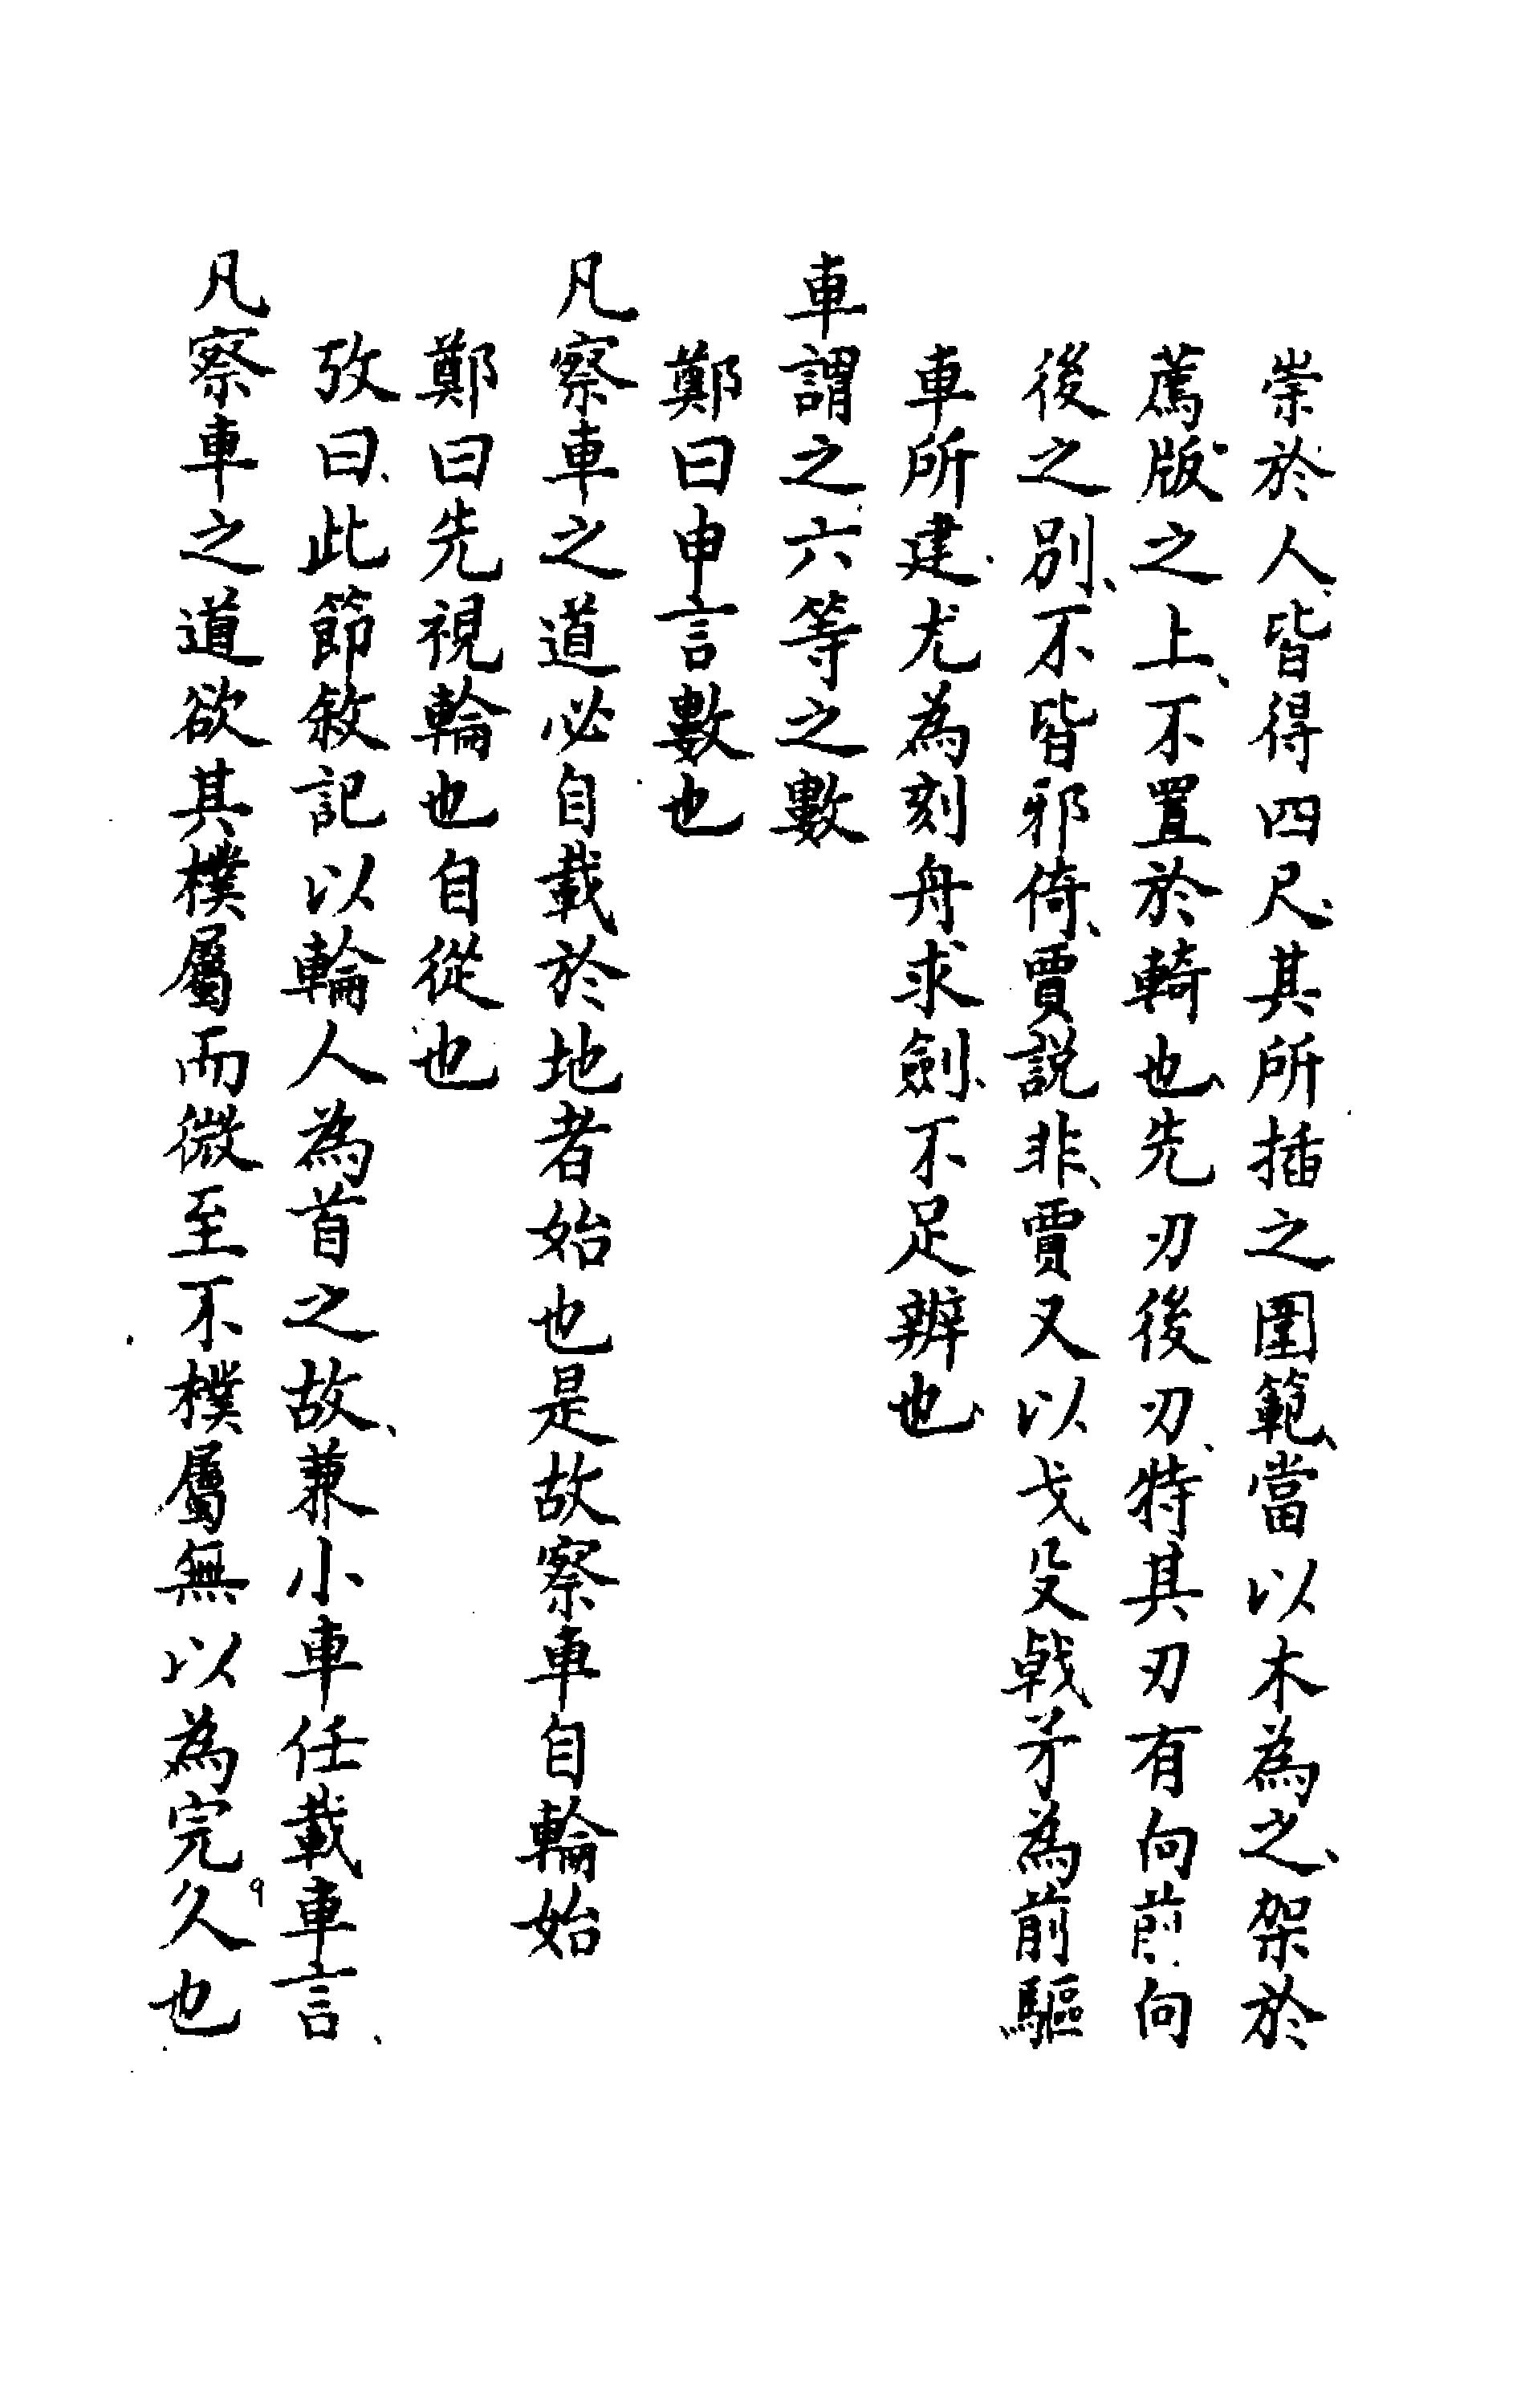 崇於人、皆得四尺、其所插之圍範、當以木為之、架於
薦版之上、不置於輢也、先刃後刃、特其刃有向前、向
後之別、不皆邪倚、賈説非、賈又以戈殳戟矛為前驅
車所建、尤為刻舟求劍、不足辨也、
車謂之六等之數
鄭曰申言數也
凡察車之道必自載於地者始也是故察車自輪始
鄭曰先視輪也自從也
攷曰、此節敘記以輪人為首之故、兼小車任載車言、
凡察車之道欲其樸屬而微至不樸屬無以為完久也